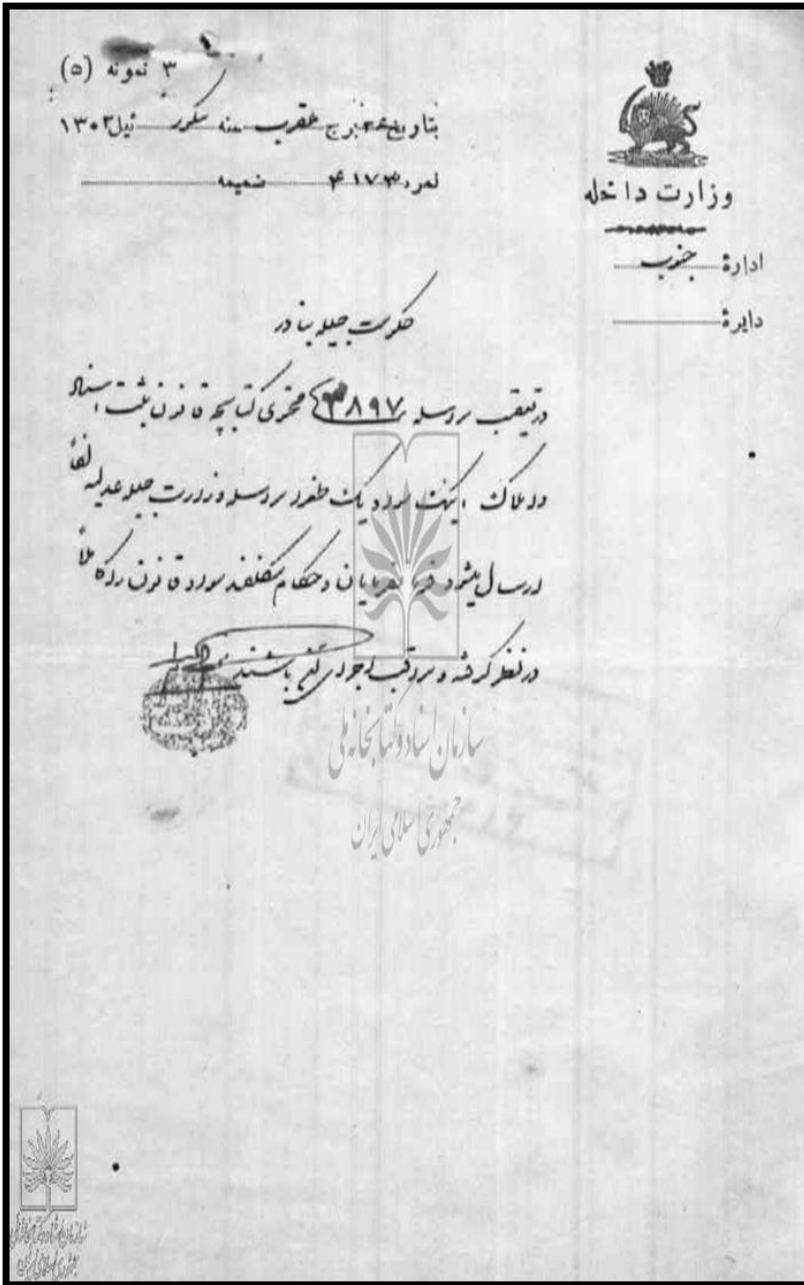 ۳ نمونه (۵)
بتاریخ ۲۶ برج عقرب سنه تنگوز ئیل ۱۳۰۲
نمره ۴۱۷۳ ضمیمه
وزارت داخله
ادارۀ جنوب
دایرۀ
حکومت جلیله بنادر
در تعقیب مرسله ۳۸۹۷ محتوی کتابچه قانون ثبت اسناد
و املاک اینک سواد یک طغرا مرسله وزارت جلیله عدلیه لفاً
ارسال میشود فرمانفرمایان و حکام مکلفند مواد قانون را کاملاً
در نظر گرفته و مراقب اجرای آن باشند
سازمان اسناد و کتابخانه ملی
جمهوری اسلامی ایران
سازمان اسناد و کتابخانه ملی
جمهوری اسلامی ایران